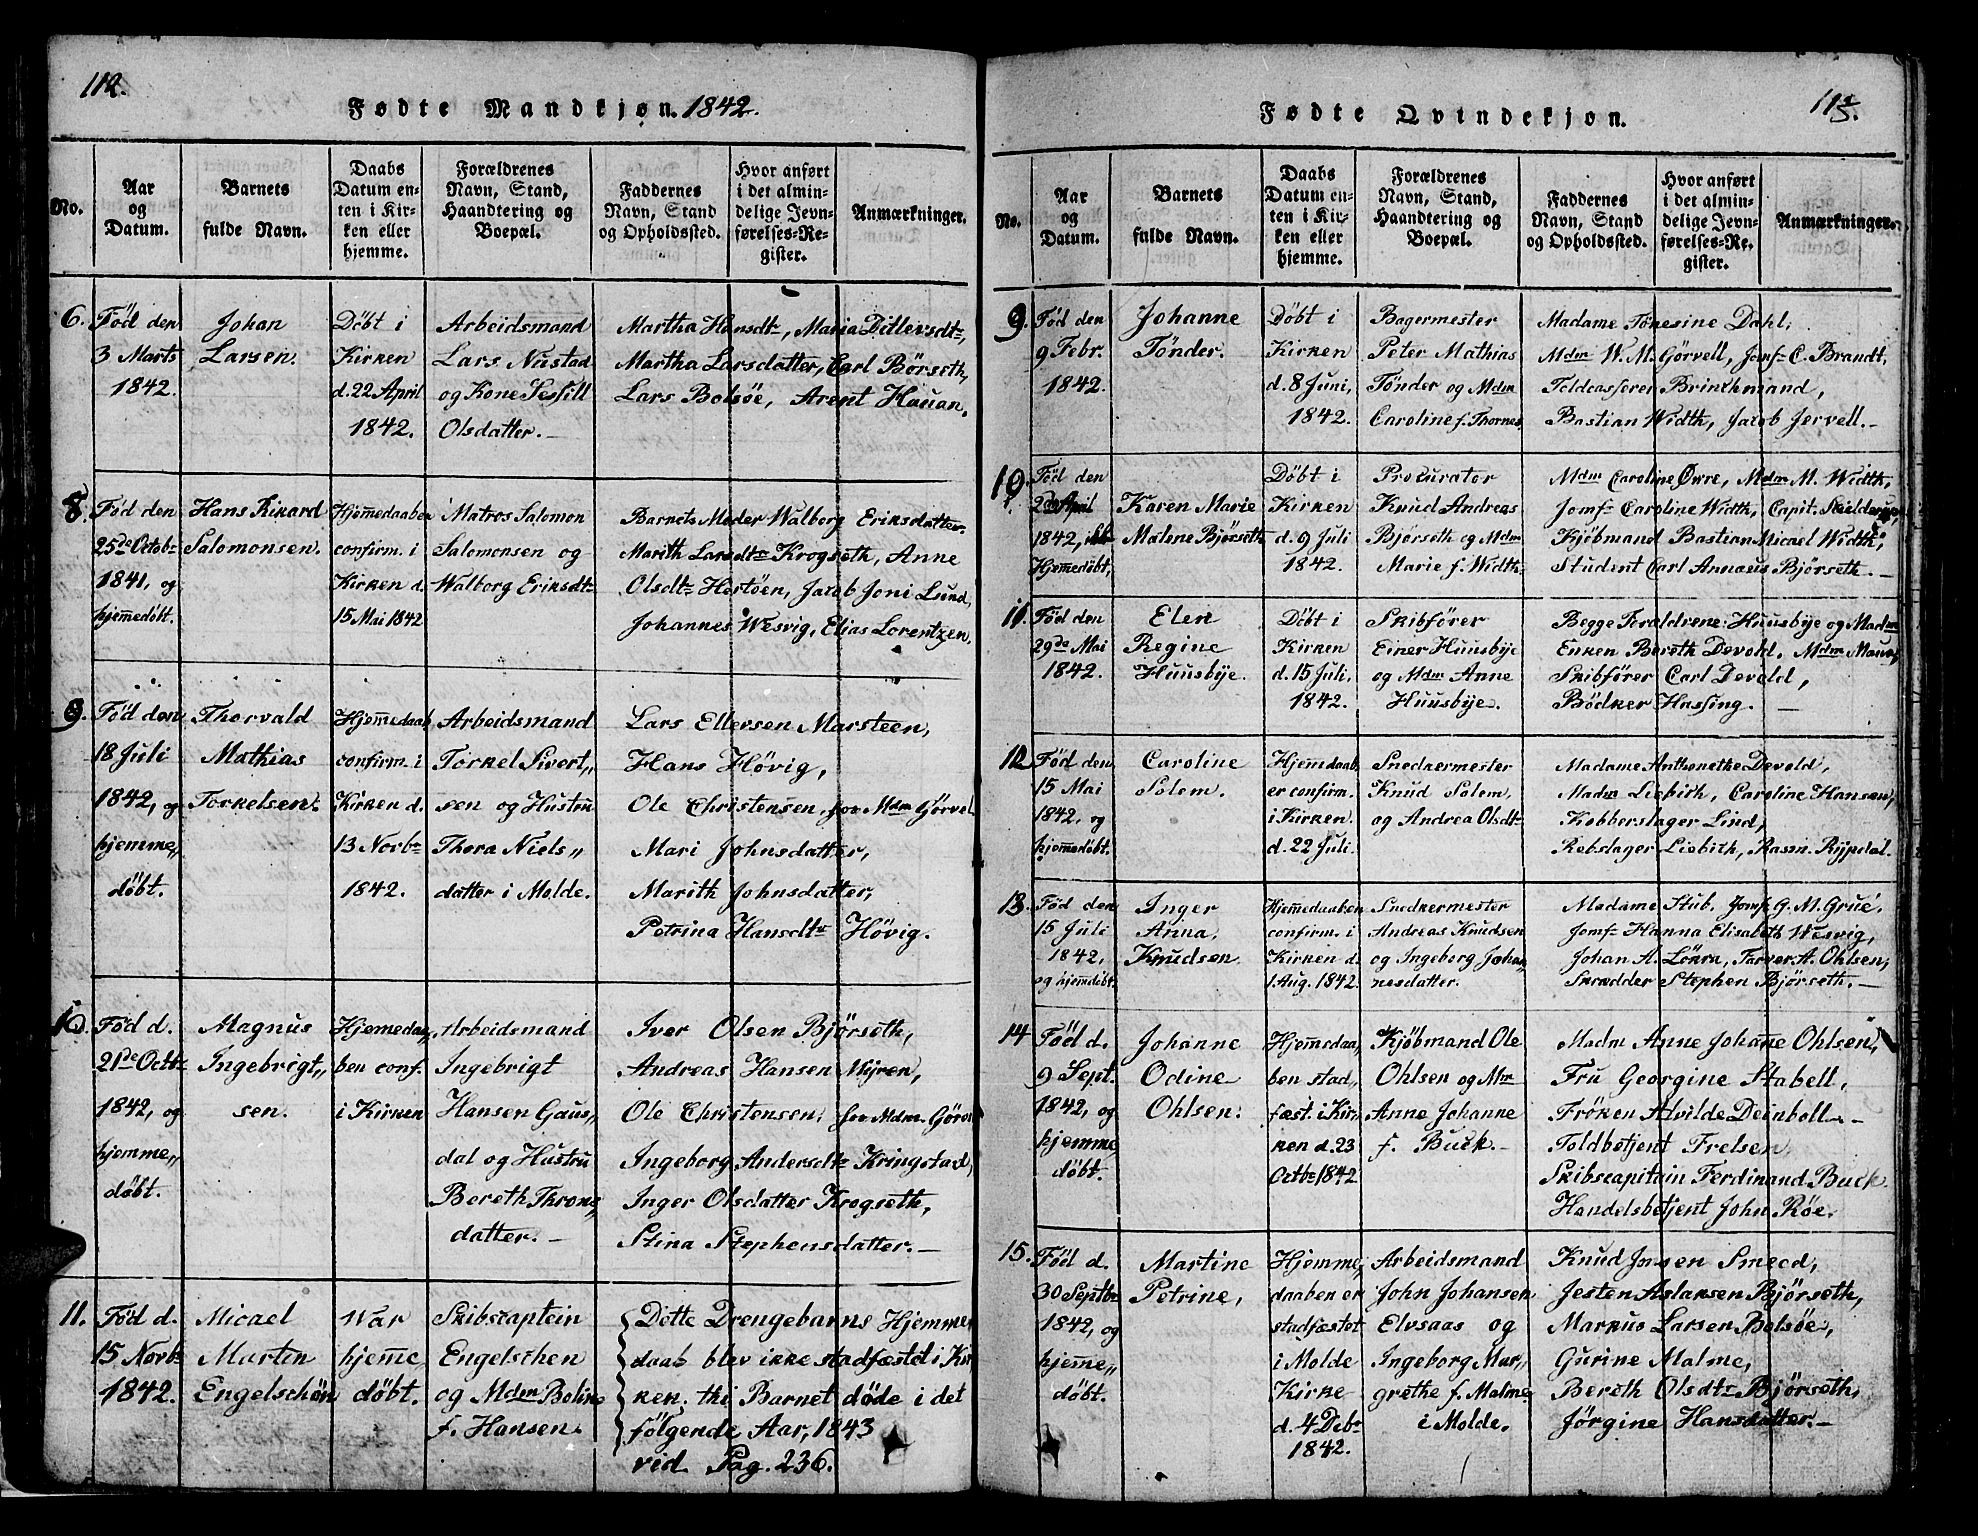 112.
Fødte Mandkjøn. 1842.
No.
Aar
og
Datum.
Barnets
fulde Navn.
Daabs
Datum en-
ten i Kir-
ken eller
hjemme.
Forældrenes
Navn, Stand,
Haandtering og
Boepæl.
Faddernes
Navn, Stand
og Opholdssted.
Hvor anført
i det almin-
delige Jevn-
førelses-Re-
gister.
Anmærkninger.
6.
Fød den
3 Marts
1842.
Johan
Larsen.
Döbt i
Kirken
d. 22 April
1842.
Arbeidsmand
Lars Nustad
og Kone Sessill
Olsdatter. —
Martha Hansdtr, Maria Ditlevsdtr,
Martha Larsdatter, Carl Börseth,
Lars Bolsöe, Arent Hauan.
8.
Fød den
25de Octobr
1841, og
hjemmedöbt.
Hans Rikard
Salomonsen.
Hjemmedaaben
confirm. i
Kirken d.
15 Mai 1842
Matros Salomon
Salomonsen og
Walborg Eriksdtr
Barnets Moder Walborg Eriksdatter
Marith Larsdtr Krogseth, Anne
Olsdtr Hertöen, Jacob Joni Lund,
Johannes Wesvig, Elias Lorentzen,
9.
Fød den
18 Juli
1842, og
hjemme„
döbt.
Thorvald
Mathias
Torkelsen.
Hjemmedaab,
confirm. i
Kirken d.
13 Novbr
1842.
Arbeidsmand
Torkel Sivert„
sen og Hustru
Thora Niels„
datter i Molde.
Lars Ellersen Marsteen,
Hans Hövig,
Ole Christensen, for Mdm Gjörvel
Mari Johnsdatter,
Marith Johnsdatter,
Petrina Hansdtr Hövig.
10.
Fød d.
21de Octbr
1842, og
hjemme„
döbt.
Magnus
Ingebrigt„
sen.
Hjemedaa„
ben conf.
i Kirken
Arbeidsmand
Ingebrigt
Hansen Gaus„
dal og Hustru
Bereth Throns„
datter. —
Iver Olsen Björseth,
Andreas Hansen Mÿren,
Ole Christensen, for Mdm. Görvel
Ingeborg Andersdtr Kringstad,
Inger Olsdatter Krogseth,
Stina Stephensdatter. —
11.
Fød d.
15 Novbr
1842.
Micael
Martin
Engelschön
War
hjeme
döbt.
Skibscaptein
Engelschen
og Mdm Boline
f. Hansen.
Dette Drengebarns Hjemme„
daab blev ikke stadfæstet i Kir
ken, thi Barnet döde i det
følgende Aar, 1843
vid Pag. 236.
113.
Fødte Qvindekjøn.
No.
Aar
og
Datum.
Barnets
fulde Navn.
Daabs
Datum en-
ten i Kir-
ken eller
hjemme.
Forældrenes
Navn, Stand,
Haandtering og
Boepæl.
Faddernes
Navn, Stand
og Opholdssted.
Hvor anført
i det almin-
delige Jevn-
førelses-Re-
gister.
Anmærkninger.
9.
Fød den
9 Febr.
1842.
Johanne
Tönder.
Döbt i
Kirken
d. 8 Juni,
1842.
Bagermester
Peter Mathias
Tönder og Mdm
Caroline f. Thornes
Madame Tönesine Dahl,
Mdm W. M. Görvell, Jomf. C. Brandt,
Toldcasserer Brinchmand,
Bastian Width, Jacob Jervell. —
10.
Fød den
2de April
1842,
Hjemedöbt,
Karen Marie
Malene Bjørseth
Döbt i
Kirken
d. 9 Juli
1842.
Procurator
Knud Andreas
Björseth og Mdm
Marie f. Width
Mdm Caroline Øvre, Mdm M. Width,
Jomf. Caroline Width, Capit. Skielderup,
Kjöbmand Bastian Micael Width,
Student Carl Annæus Björseth. —
11.
Fød den
29de Mai
1842.
Elen
Regine
Huusbÿe.
Döbt i
Kirken
d. 15 Juli,
1842.
Skibförer
Einer Huusbÿe
og Mdm Anne
Huusbÿe.
Begge Foraldrene: Huusbÿe og Madm
Enken Bereth Devold, Mdm
Skibförer Carl Devold,
Bödker Hassing. —
12
Fød den
15 Mai
1842, og
hjemedöbt.
Caroline
Solem.
Hjemdaab
er confirm.
i Kirken
d. 22 Juli
Snedkermester
Knud Solem
og Andrea Olsdtr
Madame Anthonethe Devold,
Madm Liebith, Caroline Hansen,
Kobberslager Lind,
Rebslager Liebith, Rasm. Rÿpdal.
13.
Fød den
15 Juli
1842,
og hjemdöbt
Inger
Anna,
Knudsen
Hjemmedaaben
confirm. i
Kirken d.
1 Aug. 1842
Snedkermester
Andreas Knudsen
og Ingeborg Johan„
nesdatter.
Madame Stub, Jomf. G. M. Grue,
Jomf. Hanna Elisabeth Wesvig,
Johan A. Lönra, Farver A. Ohlsen,
Skrædder Stephen Björseth. —
14
Fød d.
9 Sept.
1842, og
hjemme„
döbt.
Johanne
Odine
Ohlsen.
Hjemmedaa„
ben stad„
fæst. i Kir„
ken d. 23
Octbr 1842
Kjöbmand Ole
Ohlsen og Mm
Anne Johanne
f. Buck. —
Madm Anne Johane Ohlsen,
Fru Georgine Stabell,
Fröken Alvilde Deinboll. —
Toldbetjent Frelsen,
Skibscapitain Ferdinand Buck.
Handelsbetjent John Röe.
15.
Fød d.
30 Septbr
1842, og
hjemme„
döbt.
Martine
Petrine,
Hjemme„
daaben er
stadfæstet
i Molde
Kirke
d. 4 Debr
1842.
Arbeidsmand
John Johansen
Elvsaas og
Ingeborg Mar„
grethe f. Malme
i Molde.
Knud Jensen Smeed,
Jesten Aslaksen Björseth,
Markus Larsen Bolsöe,
Gurine Malme,
Bereth Olsdtr Björseth,
Jörgine Hansdatter. —